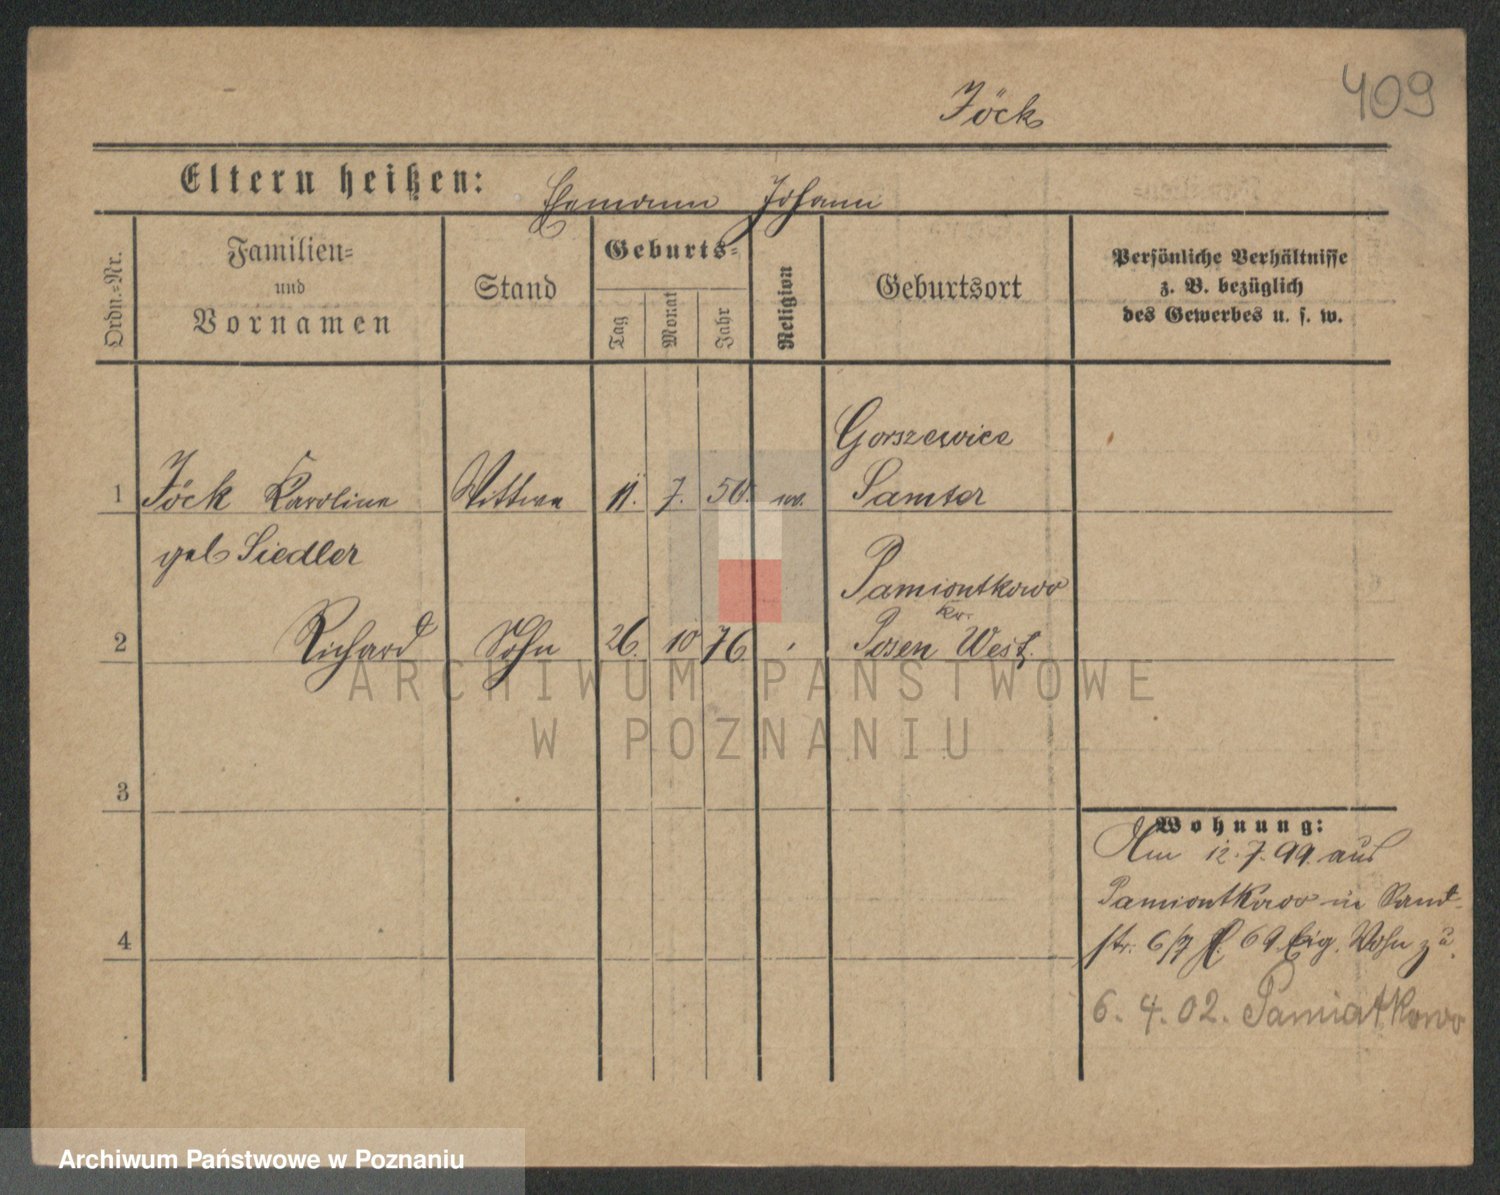 409
Jöck
Eltern heißen: Ehemann Johann
Ordn.-Nr.
Familien-
und
Vornamen
Stand
Geburts-
Tag
Monat
Jahr
Religion
Geburtsort
Persönliche Verhältnisse
z. B. bezüglich
des Gewerbes u. s. w.
Gorszewice
1 Jöck Karoline Wittwe 11. 7. 50. ev. Samter
geb Siedler
Pamiontkowo
Kr.
2 Richard Sohn 26. 10 76 Posen West.
3
4
Wohnung:
Am 12.7.99. aus
Pamiontkowo in
str. 6/7 69 Eig. Wohn zu.
6. 4. 02. Pamiatkowo
ARCHIWUM PAŃSTWOWE
W POZNANIU
Archiwum Państwowe w Poznaniu